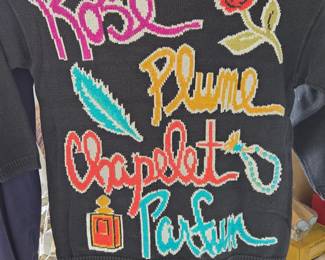 Rose
Plume
Chapelet
Parfum